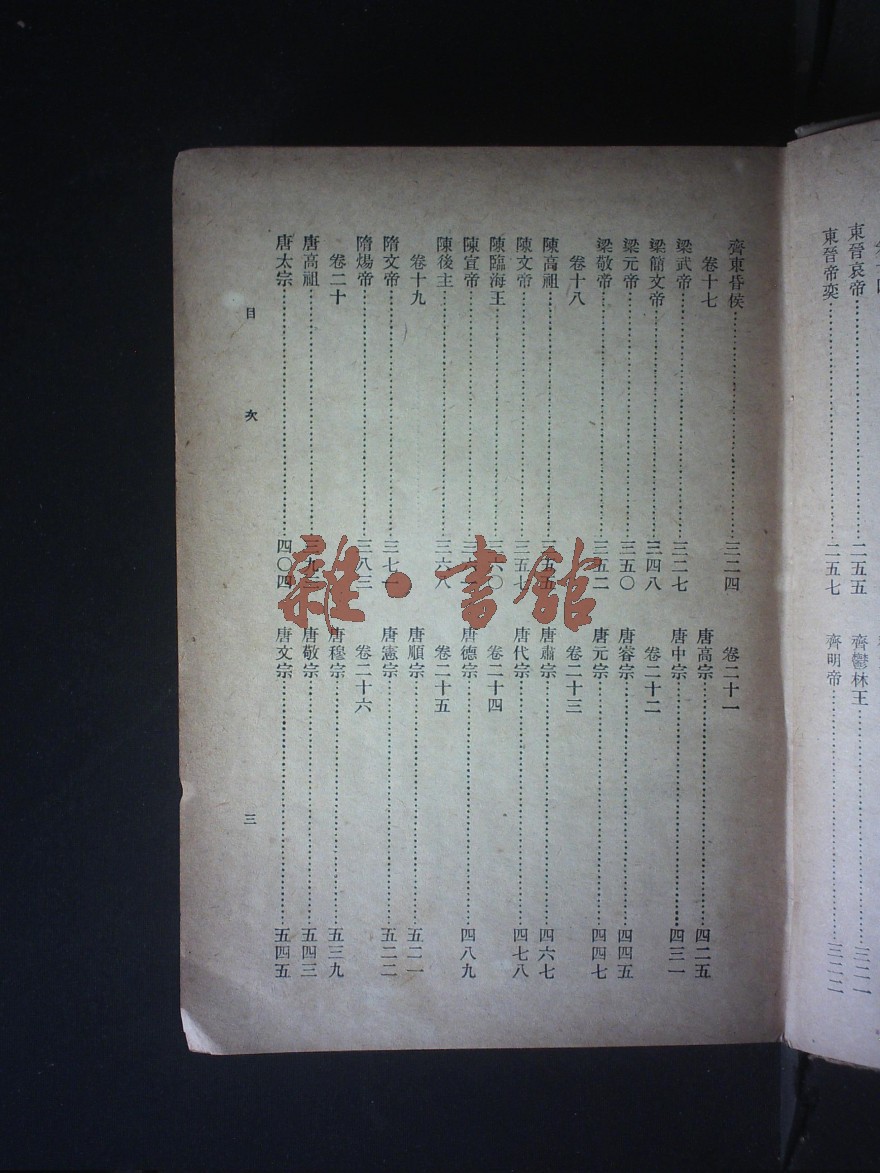 東晉哀帝……二五五
東晉帝奕……二五七
齊鬱林王……三二一
齊明帝……三二二
齊東昏侯……三二四
卷十七
梁武帝……三二七
梁簡文帝……三四八
梁元帝……三五〇
梁敬帝……三五二
卷十八
陳高祖……三五五
陳文帝……三五七
陳臨海王……三六〇
陳宣帝……三
陳後主……三六八
卷十九
隋文帝……三七一
隋煬帝……三八三
卷二十
唐高祖……三九
唐太宗……四〇四
卷二十一
唐高宗……四二五
唐中宗……四三一
卷二十二
唐睿宗……四四五
唐元宗……四四七
卷二十三
唐肅宗……四六七
唐代宗……四七八
卷二十四
唐德宗……四八九
卷二十五
唐順宗……五二一
唐憲宗……五二二
卷二十六
唐穆宗……五三九
唐敬宗……五四三
唐文宗……五四五
目次
三
雜·書館